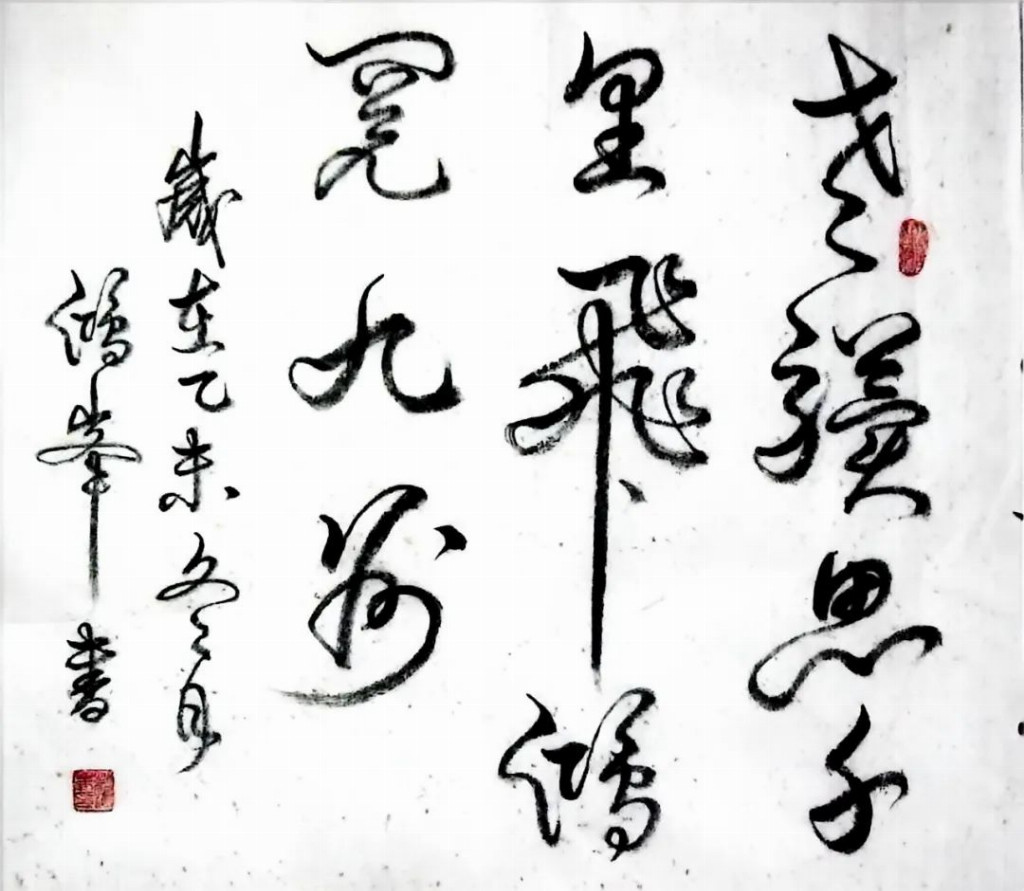 老驥思千
里飛鴻
閱九州
歲在乙未冬月
鴻峯書